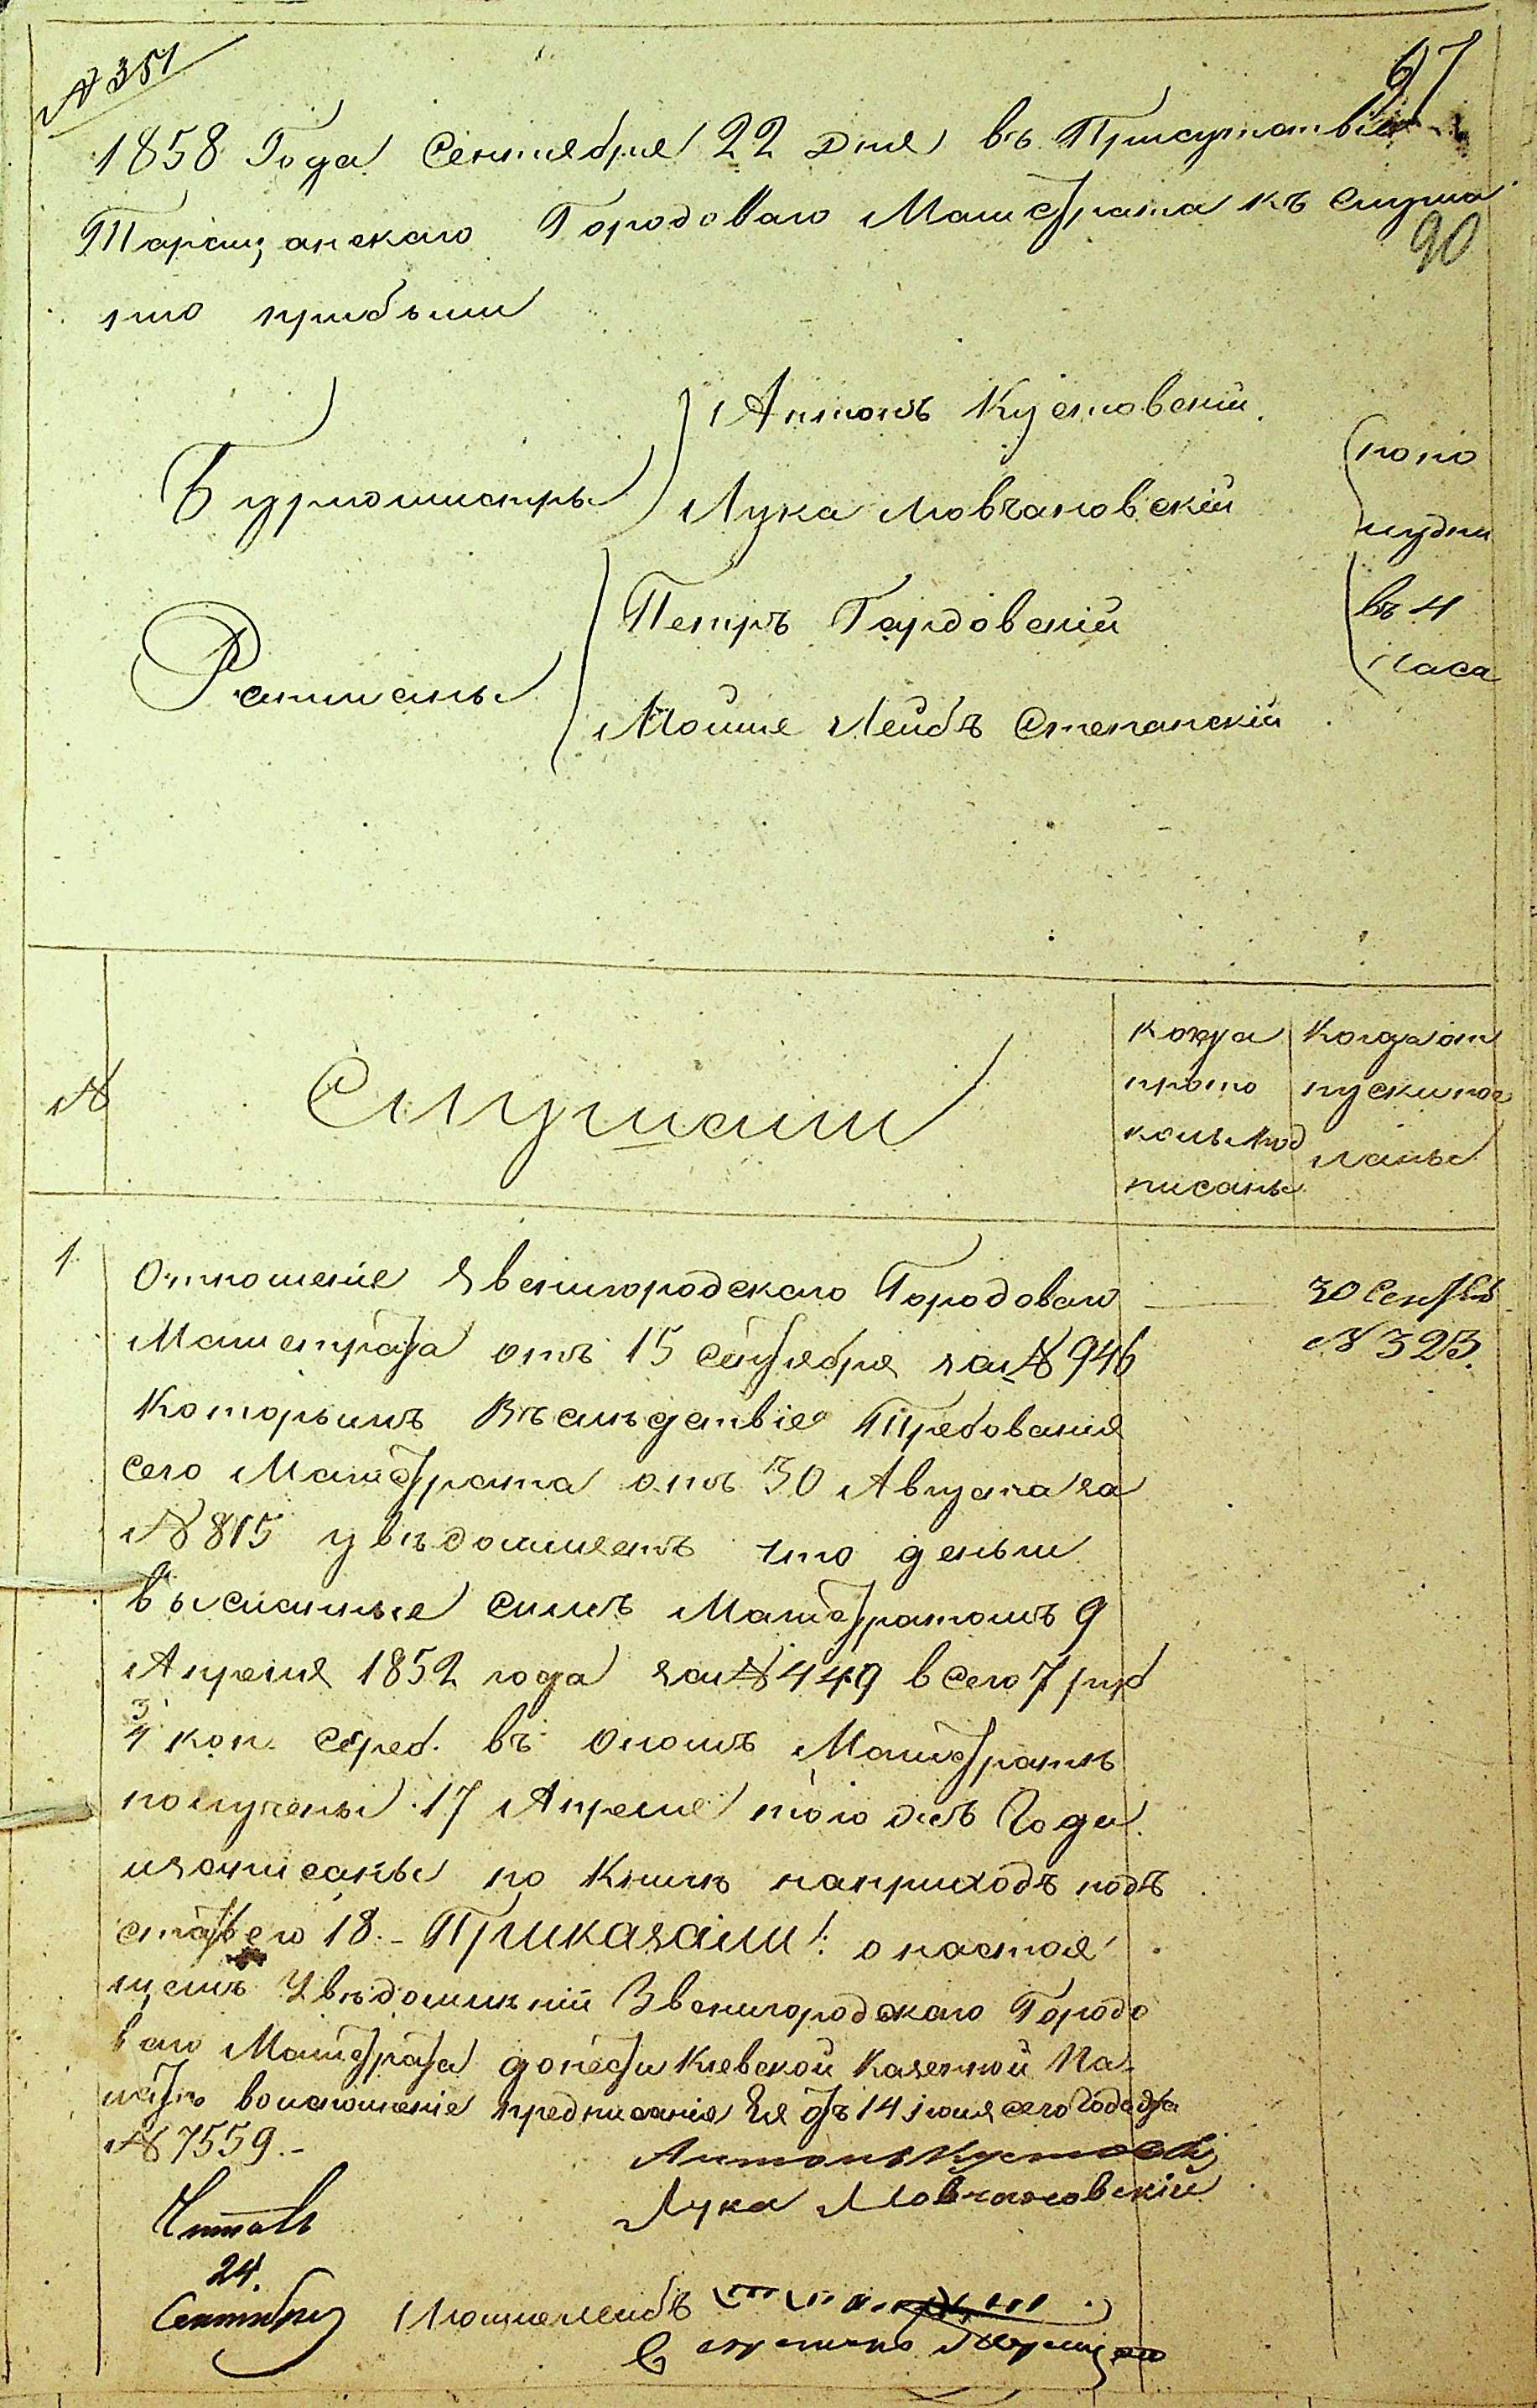 № 351
67
1858 Года Сентября 22 дня въ Присутствіи
Таращанскаго Городоваго Магистрата къ слуша
90
нію прибыли
Бурмомистры
Антонъ Кустовскій.
Лука Мовчановскій
по по
лудни
въ 4
часа
Ратманы
Петръ Гардовскій
Мошше Лейбъ Степанскій
№
Слушали
Когда
прото
колъ под
писанъ
Когда от
пуски пос
ланы
1
Отношеніе Звенигородскаго Городоваго
Магистрата отъ 15 сентября за № 946
30 Сентяб
№ 323.
Которымъ Въслѣдствіе Требованія
сего Магистрата отъ 30 Августа за
№ 815 увѣдомляетъ что деньги
высланные симъ Магистратомъ 9
Апреля 1852 года за № 449 всего 7 руб
3/4 коп. сереб. въ ономъ Магистратѣ
получены 17 Апреля того жъ Года
изаписаны по Книгѣ наприходъ подъ
статьею 18. - Приказали: о настоя
щемъ Увѣдомленіи Звенигородскаго Городо
ваго Магистрата донести Кіевской Казенной Па-
латѣ воисполненіе предписанія Ея отъ 14 іюля сего Года за
№ 7559. -
Антонъ Кустовскій
Лука Мовчановскій
Читалъ
24.
Сентября
Мошшелейбъ